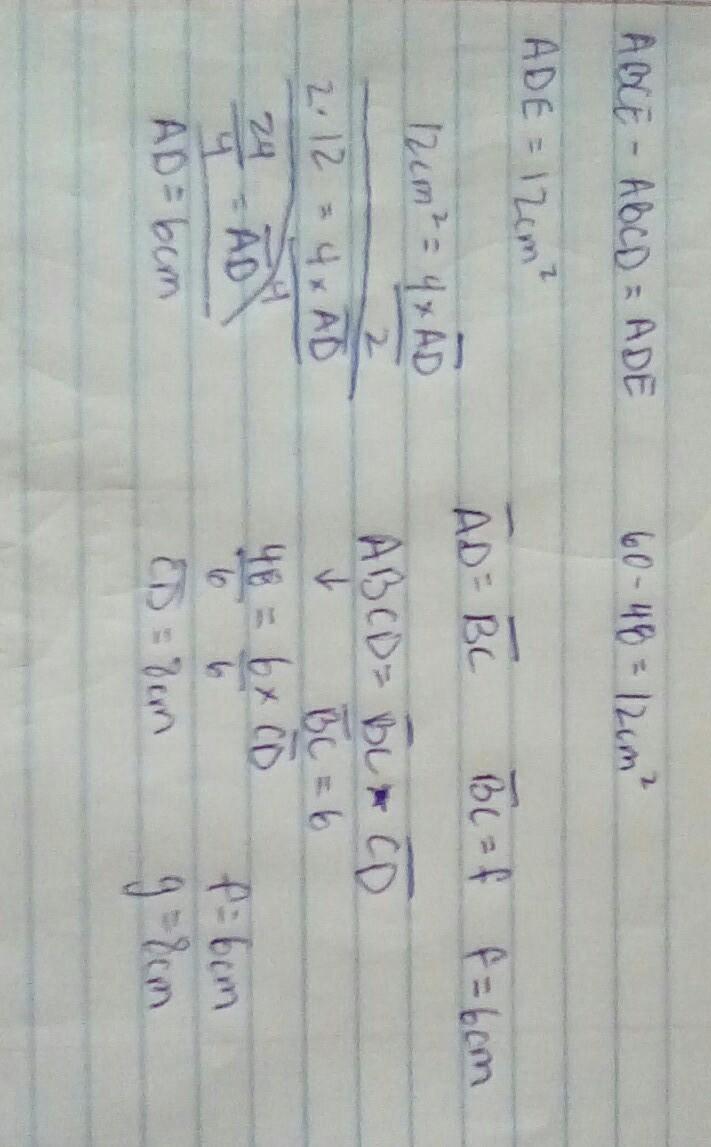 ABCE - ABCD = ADE 60 - 48 = 12cm²
ADE = 12cm²
12cm² = 4 × AD
2
2 · 12 = 4 × AD
24 = AD
4
4
AD = 6cm
AD = BC BC = f f = 6cm
ABCD = BC × CD
↓ BC = 6
48 = 6 × CD
6 6
CD = 8cm
f = 6cm
g = 8cm